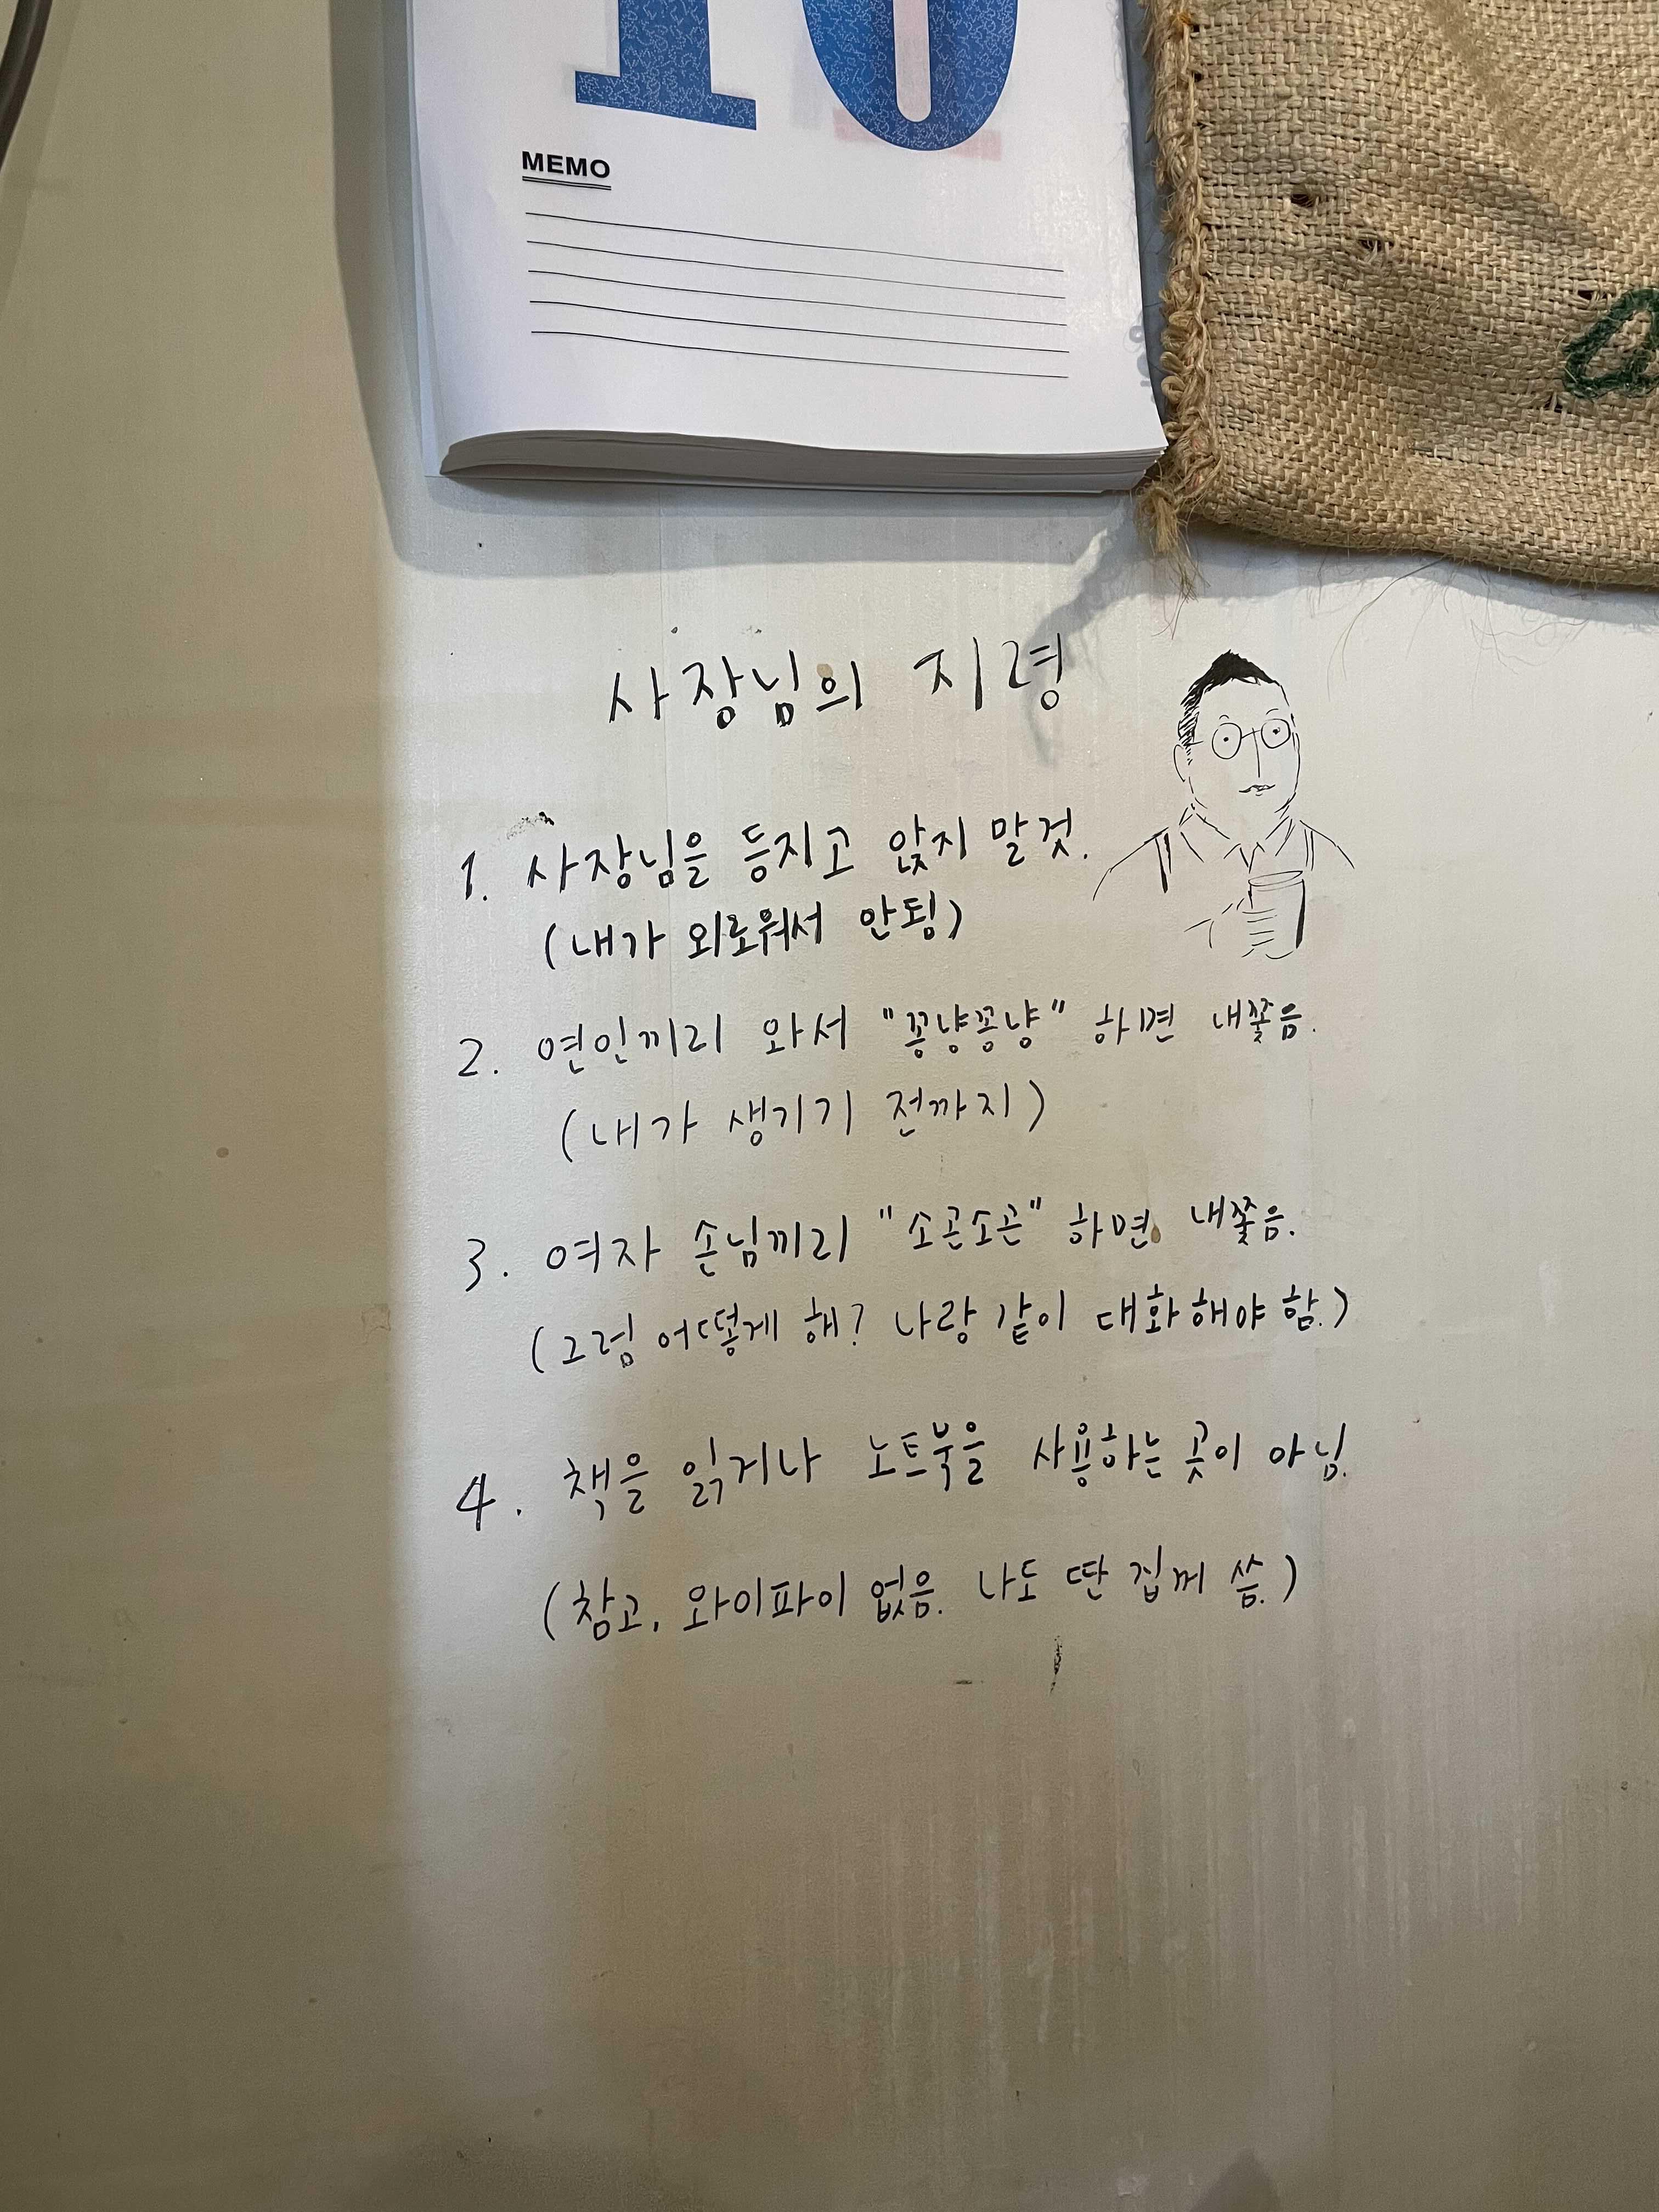 10
MEMO
사장님의 지령
1. 사장님을 등지고 앉지 말것.
(내가 외로워서 안됨)
2. 연인끼리 와서 "꽁냥꽁냥" 하면 내쫓음.
(내가 생기기 전까지)
3. 여자 손님끼리 "소곤소곤" 하면 내쫓음.
(그럼 어떻게 해? 나랑 같이 대화해야 함.)
4. 책을 읽거나 노트북을 사용하는 곳이 아님.
(참고, 와이파이 없음. 나도 딴 집꺼 씀.)